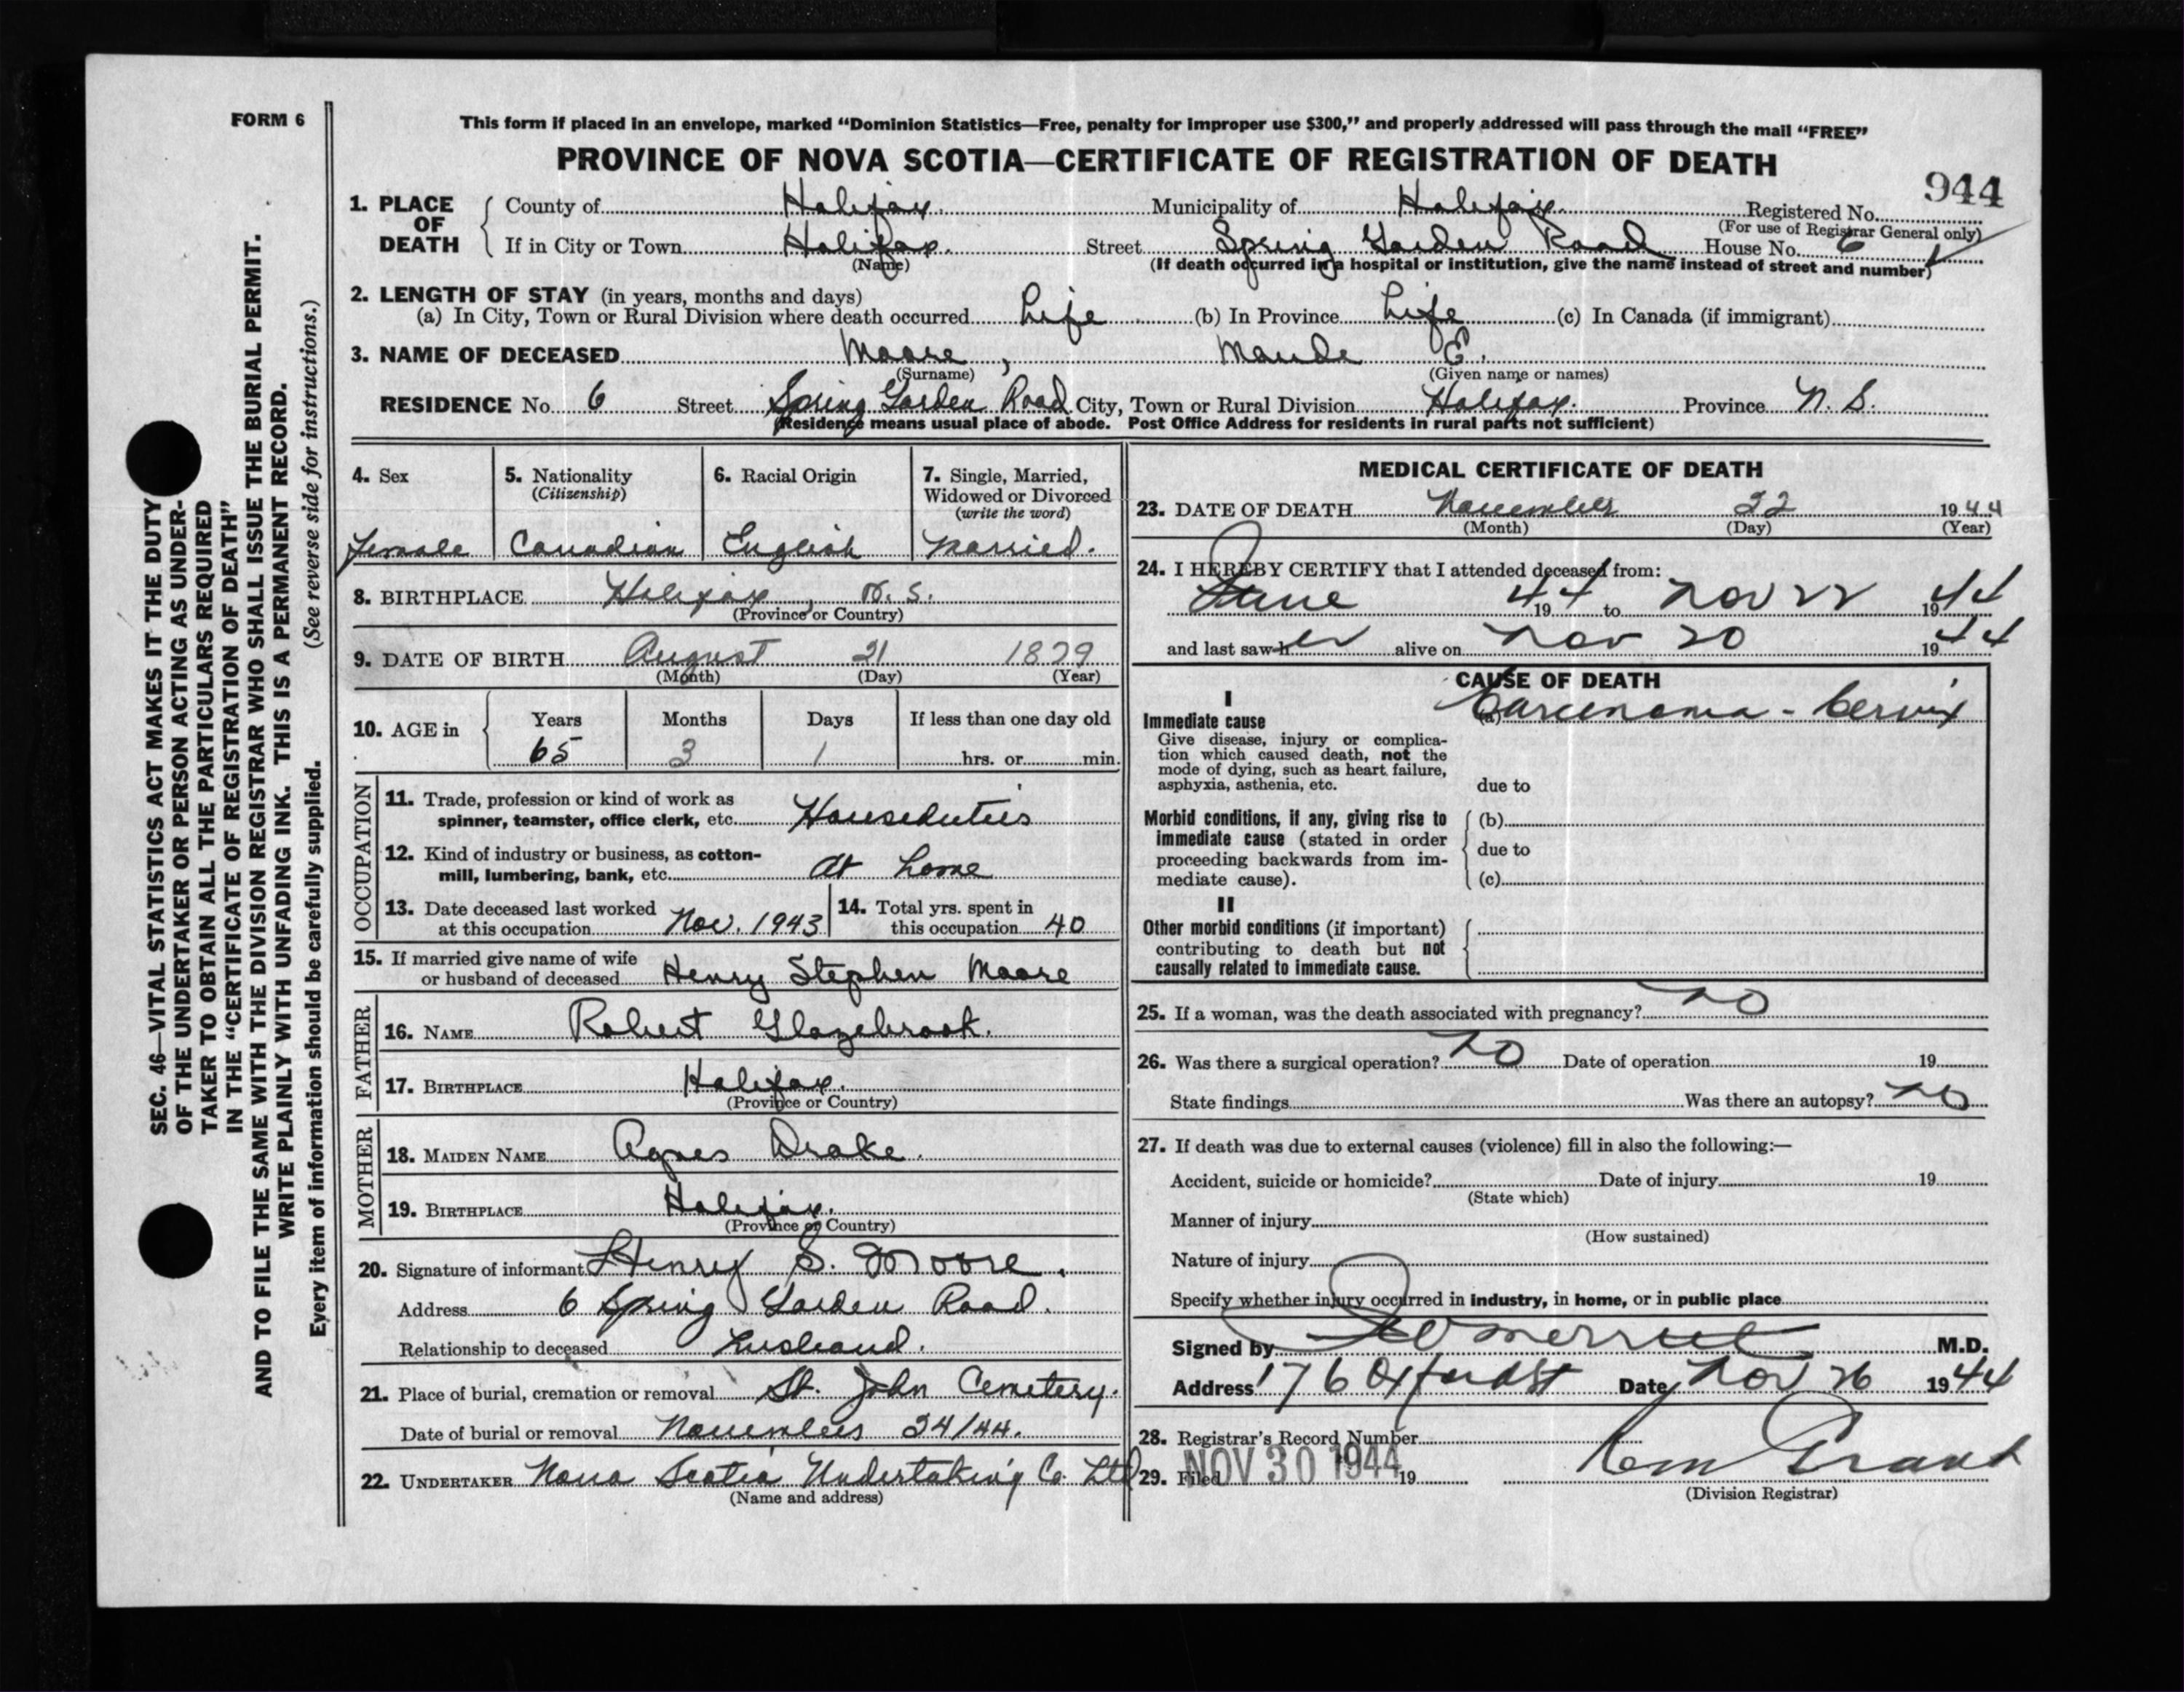 FORM 6
This form if placed in an envelope, marked “Dominion Statistics—Free, penalty for improper use $300,” and properly addressed will pass through the mail “FREE”
PROVINCE OF NOVA SCOTIA—CERTIFICATE OF REGISTRATION OF DEATH
944
1. PLACE OF DEATH
County of Halifax. Municipality of Halifax. Registered No.
(For use of Registrar General only)
If in City or Town Halifax. Street Spring Garden Road House No. 6
(Name) (If death occurred in a hospital or institution, give the name instead of street and number)
2. LENGTH OF STAY (in years, months and days)
(a) In City, Town or Rural Division where death occurred Life (b) In Province Life (c) In Canada (if immigrant)
3. NAME OF DECEASED Moore, Maude E.
(Surname) (Given name or names)
RESIDENCE No. 6 Street Spring Garden Road City, Town or Rural Division Halifax. Province N. S.
(Residence means usual place of abode. Post Office Address for residents in rural parts not sufficient)
4. Sex
female
5. Nationality
(Citizenship)
Canadian
6. Racial Origin
English
7. Single, Married,
Widowed or Divorced
(write the word)
Married.
8. BIRTHPLACE Halifax, N.S.
(Province or Country)
9. DATE OF BIRTH August 21 1879
(Month) (Day) (Year)
10. AGE in Years Months Days If less than one day old
65 3 1 hrs. or min.
OCCUPATION
11. Trade, profession or kind of work as
spinner, teamster, office clerk, etc. Houseduties
12. Kind of industry or business, as cotton-
mill, lumbering, bank, etc. At home
13. Date deceased last worked
at this occupation Nov. 1943
14. Total yrs. spent in
this occupation 40
15. If married give name of wife
or husband of deceased Henry Stephen Moore
FATHER
16. NAME Robert Glazebrook.
17. BIRTHPLACE Halifax.
(Province or Country)
MOTHER
18. MAIDEN NAME Agnes Drake.
19. BIRTHPLACE Halifax.
(Province or Country)
20. Signature of informant Henry S. Moore.
Address 6 Spring Garden Road.
Relationship to deceased husband.
21. Place of burial, cremation or removal St. John Cemetery.
Date of burial or removal November 24/44.
22. UNDERTAKER Nova Scotia Undertaking Co. Ltd
(Name and address)
MEDICAL CERTIFICATE OF DEATH
23. DATE OF DEATH November 22 1944
(Month) (Day) (Year)
24. I HEREBY CERTIFY that I attended deceased from:
June 1944 to Nov 22 1944
and last saw her alive on Nov 20 1944
CAUSE OF DEATH
I
Immediate cause
(a) Carcinoma - Cervix
Give disease, injury or complica-
tion which caused death, not the
mode of dying, such as heart failure,
asphyxia, asthenia, etc.
due to
Morbid conditions, if any, giving rise to
immediate cause (stated in order
proceeding backwards from im-
mediate cause).
(b)
due to
(c)
II
Other morbid conditions (if important)
contributing to death but not
causally related to immediate cause.
25. If a woman, was the death associated with pregnancy? no
26. Was there a surgical operation? no Date of operation 19
State findings Was there an autopsy? no
27. If death was due to external causes (violence) fill in also the following:—
Accident, suicide or homicide? Date of injury 19
(State which)
Manner of injury
(How sustained)
Nature of injury
Specify whether injury occurred in industry, in home, or in public place
Signed by Merritt M.D.
Address 176 Oxford St Date Nov 26 1944
28. Registrar's Record Number
29. Filed NOV 30 1944 19
Grant
(Division Registrar)
SEC. 46—VITAL STATISTICS ACT MAKES IT THE DUTY
OF THE UNDERTAKER OR PERSON ACTING AS UNDER-
TAKER TO OBTAIN ALL THE PARTICULARS REQUIRED
IN THE “CERTIFICATE OF REGISTRATION OF DEATH”
AND TO FILE THE SAME WITH THE DIVISION REGISTRAR WHO SHALL ISSUE THE BURIAL PERMIT.
WRITE PLAINLY WITH UNFADING INK. THIS IS A PERMANENT RECORD.
Every item of information should be carefully supplied. (See reverse side for instructions.)